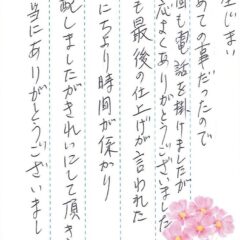 じまい
めての事だったので
回も電話を掛けましたが
応よくありがとうございました
も最後の仕上げが言われた
にちより時間が係かり
配しましたがきれいにして頂き
当にありがとうございまし